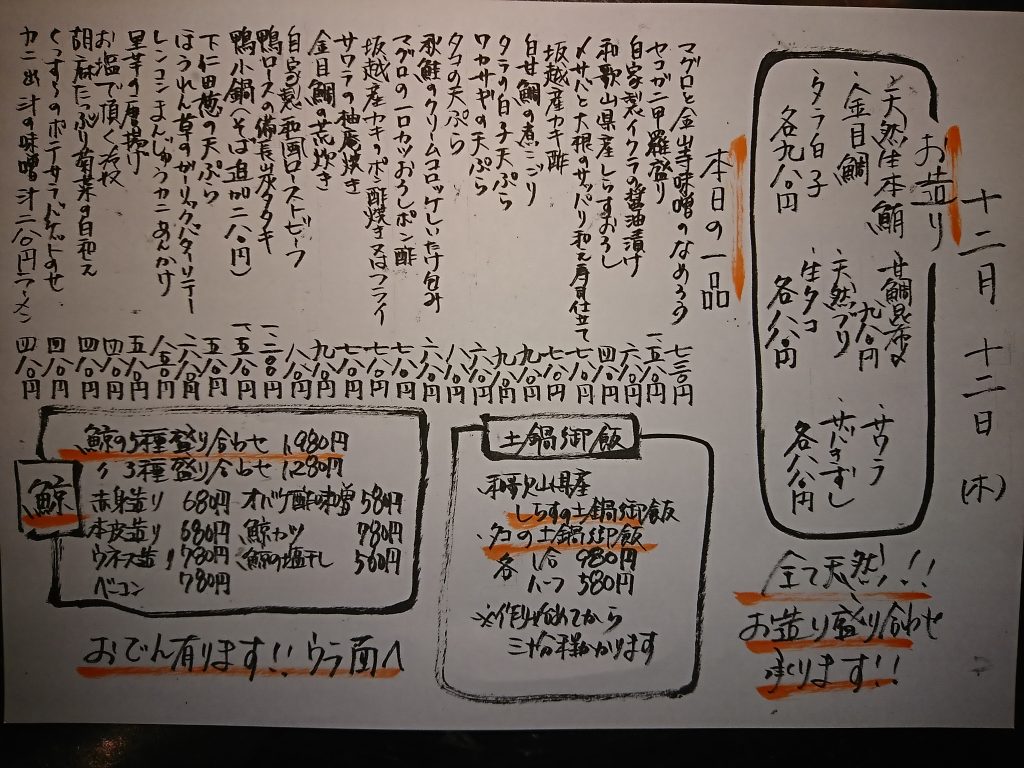 十二月十二日(木)
お造り
天然生本鮪
金目鯛
タラ白子
各九八〇円
甘鯛昆布〆
九八〇円
天然ブリ
生タコ
各八八〇円
サワラ
サバきずし
各八八〇円
全て天然!!
お造り盛り合わせ
承ります!!
本日の一品
マグロと金山寺味噌のなめろう 七三〇円
セコガニ甲羅盛り 一、五八〇円
自家製イクラの醤油漬け 六八〇円
和歌山県産しらすおろし 四八〇円
〆サバと大根のサッパリ和え寿司仕立て 七八〇円
坂越産カキ酢 七八〇円
白甘鯛の煮こごり
タラの白子天ぷら 九八〇円
ワカサギの天ぷら 六八〇円
タコの天ぷら 八八〇円
秋鮭のクリームコロッケしいたけ包み 六八〇円
マグロの一口カツおろしポン酢 八八〇円
坂越産カキのポン酢焼き又はフライ 七八〇円
サワラの柚庵焼き 七八〇円
金目鯛の荒炊き 九八〇円
自家製和風ローストビーフ 八八〇円
鴨ロースの備長炭タタキ 一、二八〇円
鴨小鍋(そば追加二八〇円) 一、五八〇円
下仁田葱の天ぷら 五八〇円
ほうれん草のガーリックバターソテー 六八〇円
レンコンまんじゅうカニあんかけ 八五〇円
里芋の唐揚げ 五八〇円
お塩で頂く冷奴 四八〇円
胡麻たっぷり菊菜の白和え 四八〇円
くんすらのポテサラバゲットのせ 四八〇円
カニめ汁の味噌汁二八〇円ラーメン 四八〇円
土鍋御飯
和歌山県産
しらすの土鍋御飯
タコの土鍋御飯
各 1合 980円
ハーフ 580円
※作り始めてから
三十分程かかります
鯨
鯨の5種盛り合わせ 1,980円
〃 3種盛り合わせ 1,280円
赤身造り 680円 オバケ酢味噌 580円
本皮造り 680円 鯨カツ 780円
ウネス造り 780円 鯨の塩干し 560円
ベーコン 780円
おでん有ります!!ウラ面へ